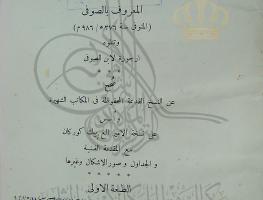 المعروف بالصوفى
(المتوفى سنة ٣٧٦ھ/٩٨٦م)
وتتلوه
ارجوزة لابن الصوفى
صحح
عن النسخ القديمة المحفوظة فى المكاتب الشهيرة
عن نسخة الامير الغ بيك كوركان
مع المقدمة
والجداول وصور الاشكال وغيرها
الطبعة الاولى